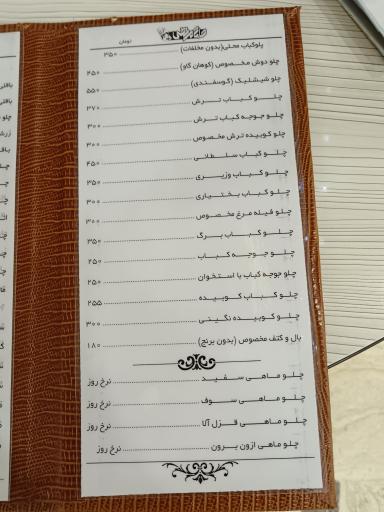 تومان
پلوکباب محلی(بدون مخلفات) ۳۵۰
چلو دوش مخصوص (کوهان گاو) ۴۵۰
چلو شیشلیک (گوسفندی) ۵۵۰
چلو کباب ترش ۳۷۰
چلو جوجه کباب ترش ۳۰۰
چلو کوبیده ترش مخصوص ۳۰۰
چلو کباب سلطانی ۴۵۰
چلو کباب وزیری ۳۵۰
چلو کباب بختیاری ۳۰۰
چلو فیله مرغ مخصوص ۳۰۰
چلو کباب برگ ۳۵۰
چلو جوجه کباب ۲۵۰
چلو جوجه کباب با استخوان ۲۵۰
چلو کباب کوبیده ۲۵۵
چلو کوبیده نگینی ۳۰۰
بال و کتف مخصوص (بدون برنج) ۱۸۰
چلو ماهی سفید نرخ روز
چلو ماهی سوف نرخ روز
چلو ماهی قزل آلا نرخ روز
چلو ماهی ازون برون نرخ روز